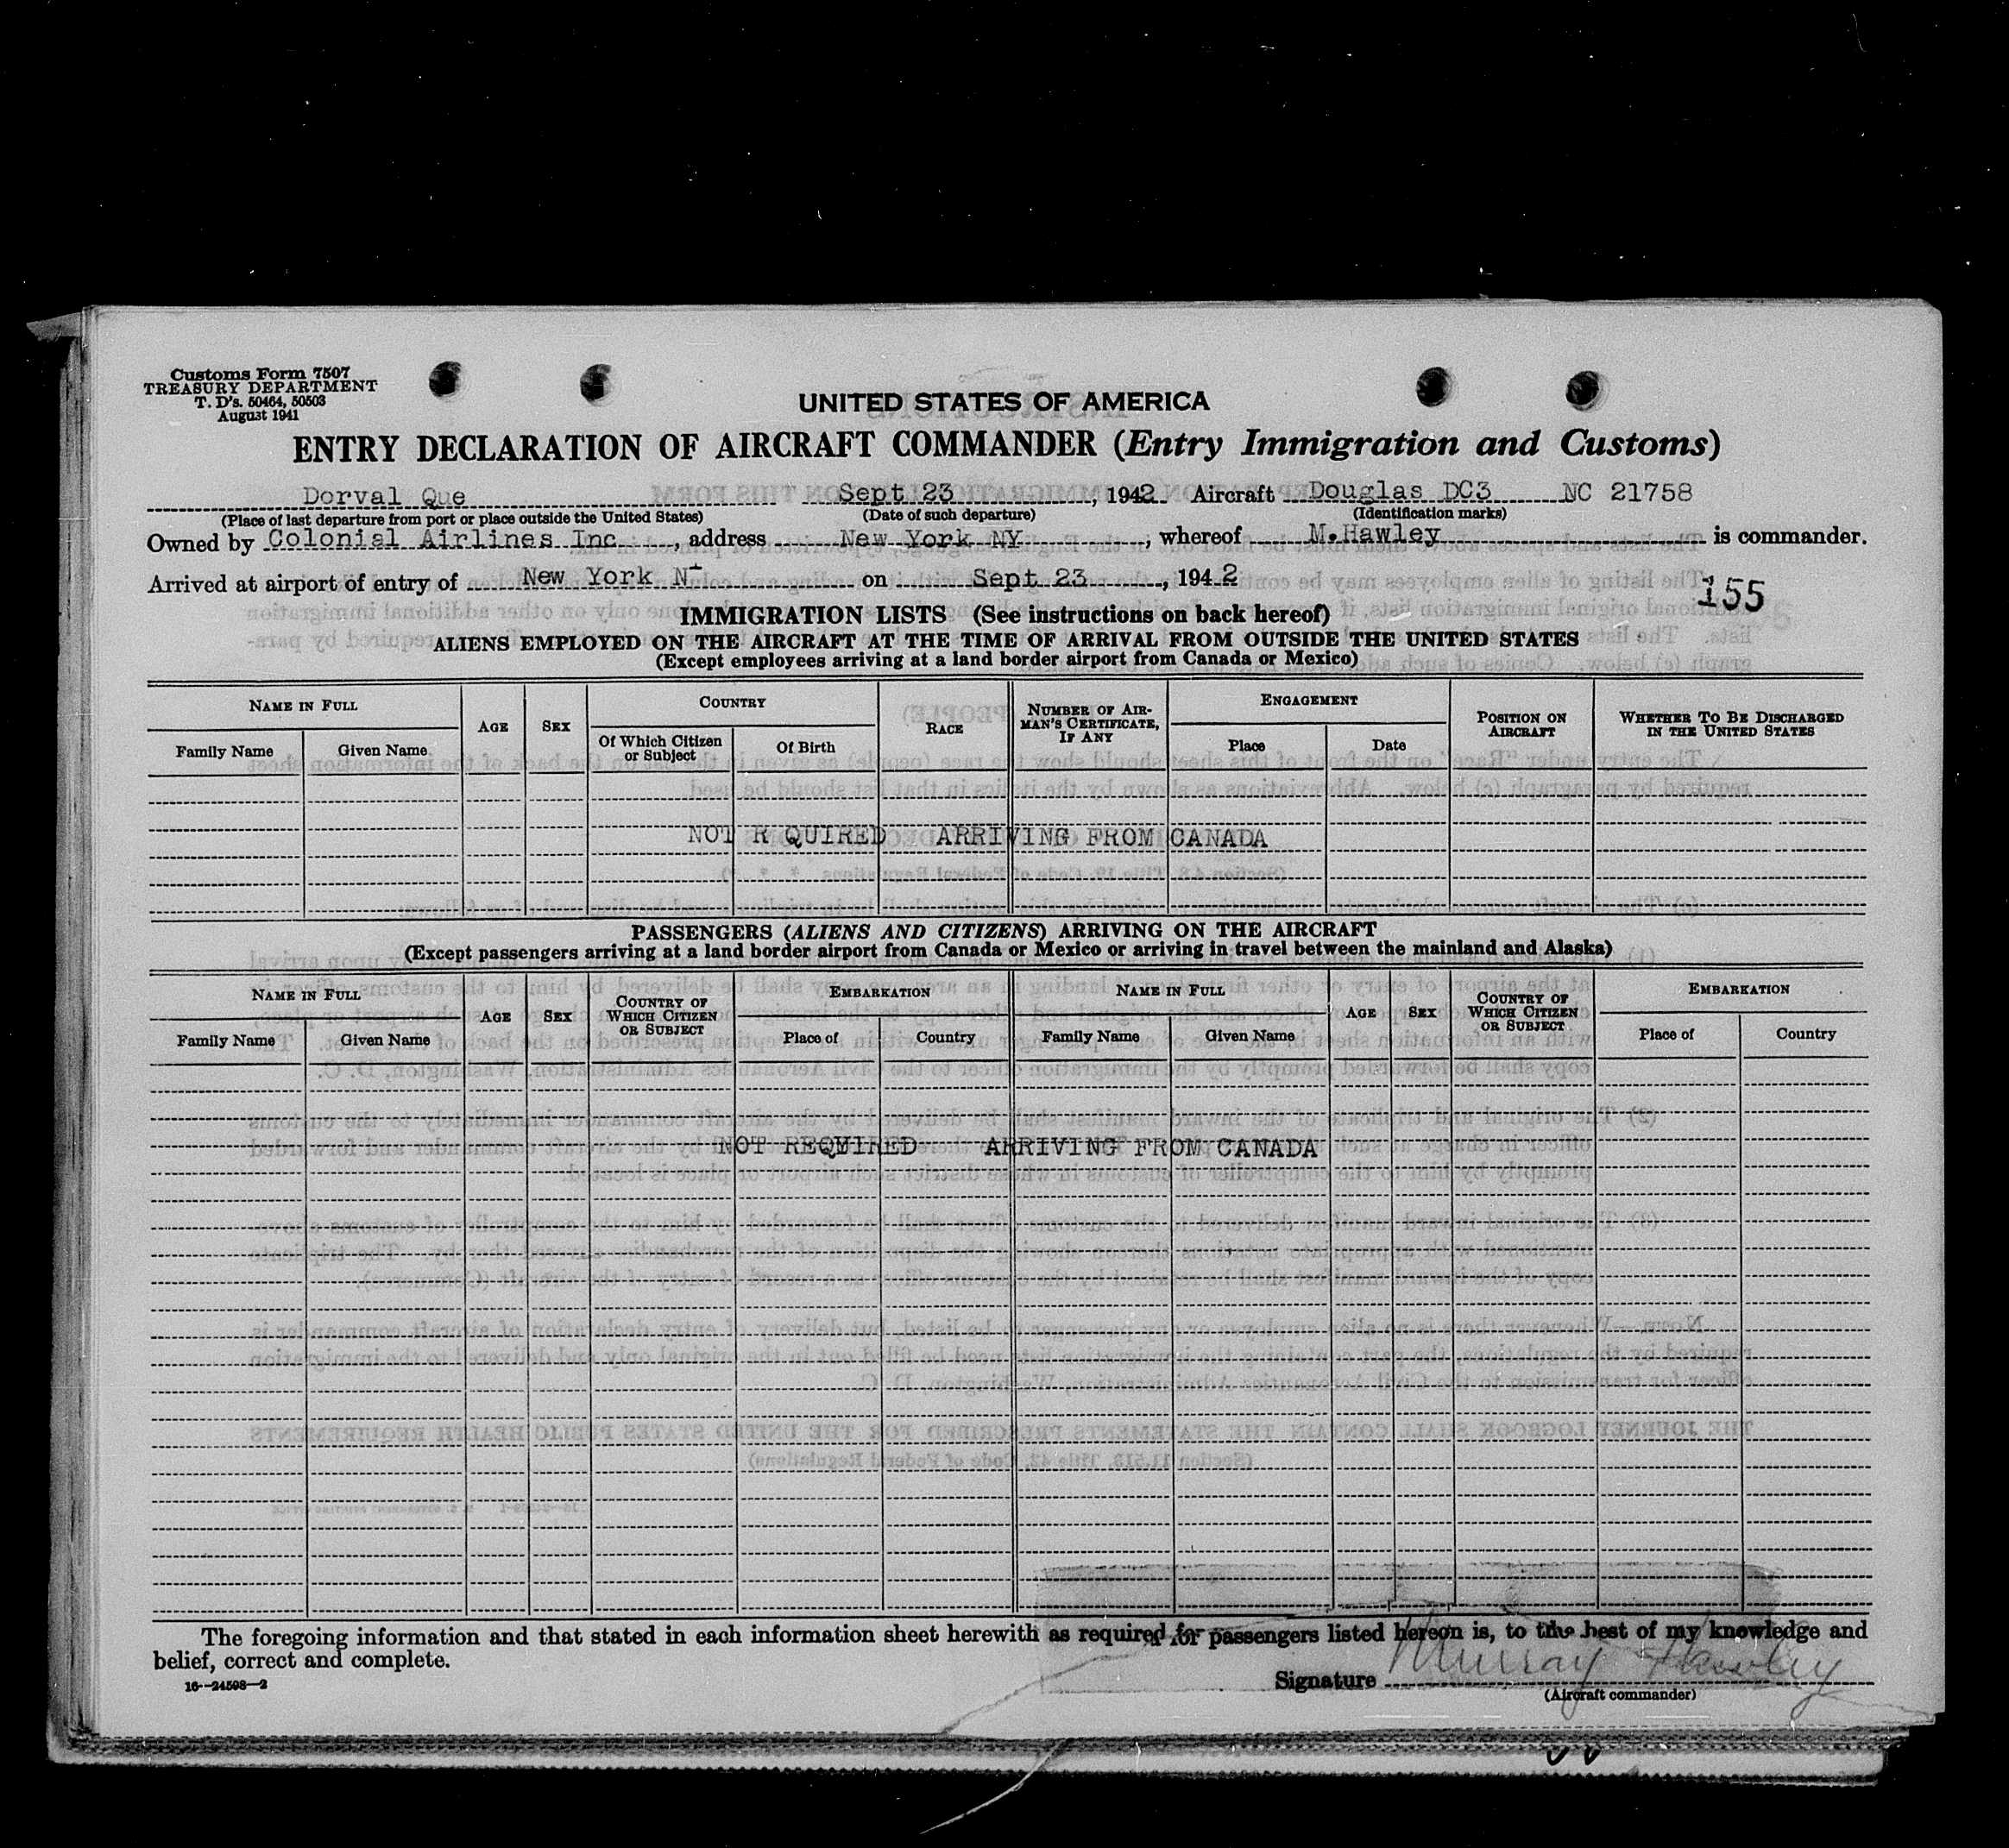 Customs Form 7507
TREASURY DEPARTMENT
T. D's. 50464, 50503
August 1941
UNITED STATES OF AMERICA
ENTRY DECLARATION OF AIRCRAFT COMMANDER (Entry Immigration and Customs)
Dorval Que Sept 23, 1942 Aircraft Douglas DC3 NC 21758
(Place of last departure from port or place outside the United States) (Date of such departure) (Identification marks)
Owned by Colonial Airlines Inc, address New York NY, whereof M.Hawley is commander.
Arrived at airport of entry of New York N on Sept 23, 1942
155
IMMIGRATION LISTS (See instructions on back hereof)
ALIENS EMPLOYED ON THE AIRCRAFT AT THE TIME OF ARRIVAL FROM OUTSIDE THE UNITED STATES
(Except employees arriving at a land border airport from Canada or Mexico)
NAME IN FULL AGE SEX COUNTRY RACE NUMBER OF AIRMAN'S CERTIFICATE, IF ANY ENGAGEMENT POSITION ON AIRCRAFT WHETHER TO BE DISCHARGED IN THE UNITED STATES
Family Name Given Name Of Which Citizen or Subject Of Birth Place Date
NOT R QUIRED ARRIVING FROM CANADA
PASSENGERS (ALIENS AND CITIZENS) ARRIVING ON THE AIRCRAFT
(Except passengers arriving at a land border airport from Canada or Mexico or arriving in travel between the mainland and Alaska)
NAME IN FULL AGE SEX COUNTRY OF WHICH CITIZEN OR SUBJECT EMBARKATION NAME IN FULL AGE SEX COUNTRY OF WHICH CITIZEN OR SUBJECT EMBARKATION
Family Name Given Name Place of Country Family Name Given Name Place of Country
NOT REQUIRED ARRIVING FROM CANADA
The foregoing information and that stated in each information sheet herewith as required for passengers listed hereon is, to the best of my knowledge and
belief, correct and complete.
Signature Murray Hawley
(Aircraft commander)
16-24598-2